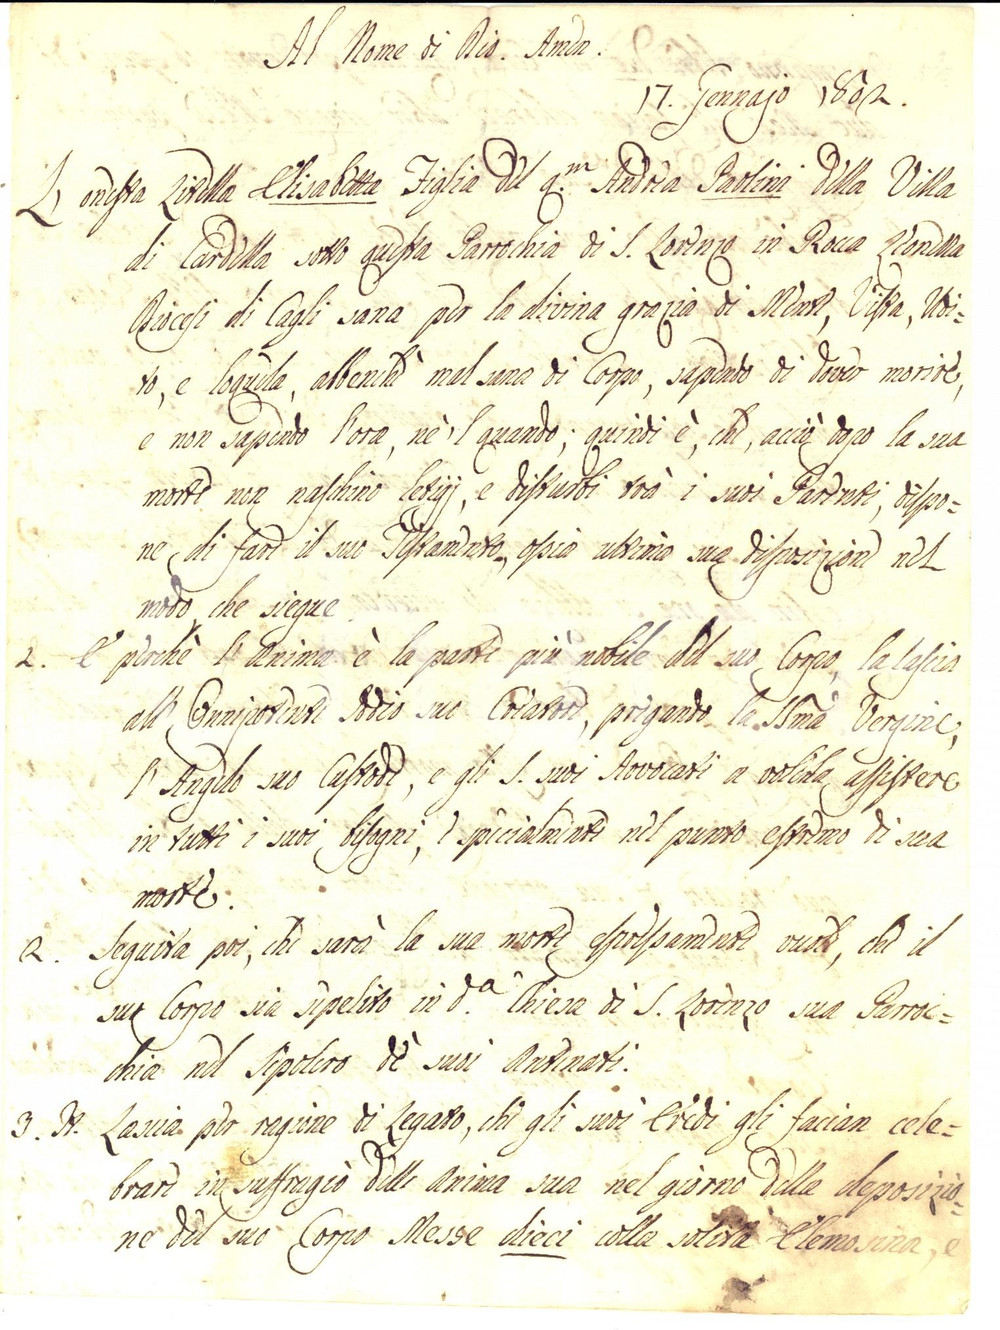 Al Nome di Dio. Amen.
17. Gennajo 1802.
L'onesta Zitella Elisabetta Figlia del q.m Andrea Paolini della Villa
di Cardella sotto questa Parrochia di S. Lorenzo in Rocca Leonella
Diocesi di Cagli sana per la divina grazia di Mente, Vista, Udi=
to, e loquela, abbenchè mal sana di Corpo, sapendo di dover morire,
e non sapendo l'ora, nè 'l quando; quindi è, che, acciò dopo la sua
morte non naschino letigj, e disturbi trà i suoi Parenti, dispo=
ne di fare il suo Testamento, ossia ultima sua disposizione nel
modo che siegue
2. E perchè l'Anima è la parte più nobile del suo Corpo, la lascia
all'Onnipotente Iddio suo Creatore, pregando la SSmà Vergine,
l'Angelo suo Custode, e gli S. suoi Avvocati a volerla assistere
in tutti i suoi bisogni, e specialmente nel punto estremo di sua
morte.
2. Seguita poi, che sarà la sua morte espressamente vuole, che il
suo Corpo sia sepelito in d.a Chiesa di S. Lorenzo sua Parroc=
chia nel Sepolcro de' suoi Antenati.
3. It. Lascia per ragione di Legato, che gli suoi Eredi gli facian cele=
brare in suffragio dell' Anima sua nel giorno della deposizio=
ne del suo Corpo Messe dieci colla solita Elemosina, e